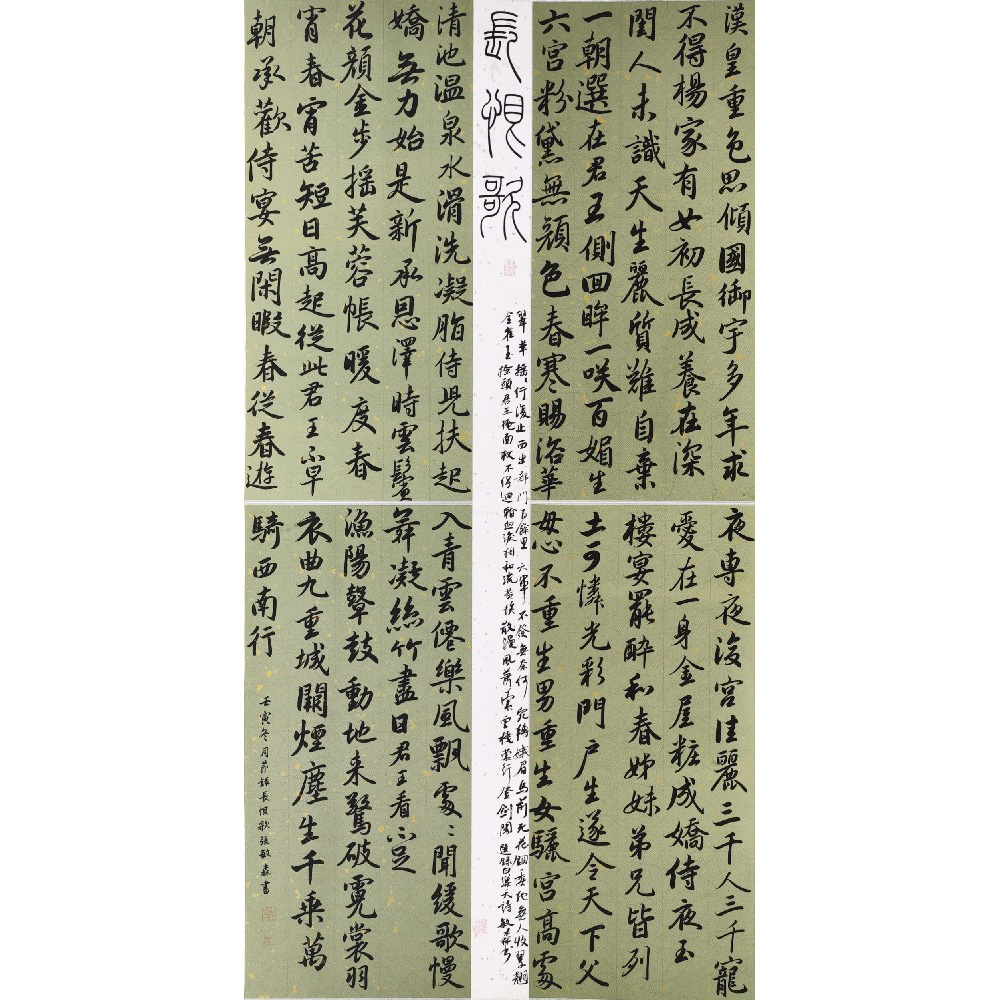 長恨歌
漢皇重色思傾國御宇多年求
不得楊家有女初長成養在深
閨人未識天生麗質難自棄
一朝選在君王側回眸一咲百媚生
六宮粉黛無顏色春寒賜浴華
清池温泉水滑洗凝脂侍兒扶起
嬌無力始是新承恩澤時雲鬢
花顏金步搖芙蓉帳暖度春
宵春宵苦短日高起從此君王不早
朝承歡侍宴無閑暇春從春遊
夜專夜後宮佳麗三千人三千寵
愛在一身金屋粧成嬌侍夜玉
樓宴罷醉和春姊妹弟兄皆列
土可憐光彩門戶生遂令天下父
母心不重生男重生女驪宮高處
入青雲僊樂風飄處〻聞緩歌慢
舞凝絲竹盡日君王看不足
漁陽鼙鼓動地来驚破霓裳羽
衣曲九重城闕煙塵生千乘萬
騎西南行
壬寅冬月節錄長恨歌張敏森書
翠華搖〻行復止西出都門百餘里六軍不發無奈何宛轉娥眉馬前死花鈿委地無人收翠翹
金雀玉搔頭君王掩面救不得迴看血淚相和流黃埃散漫風蕭索雲棧縈紆登劍閣選錄白樂天詩敏森書